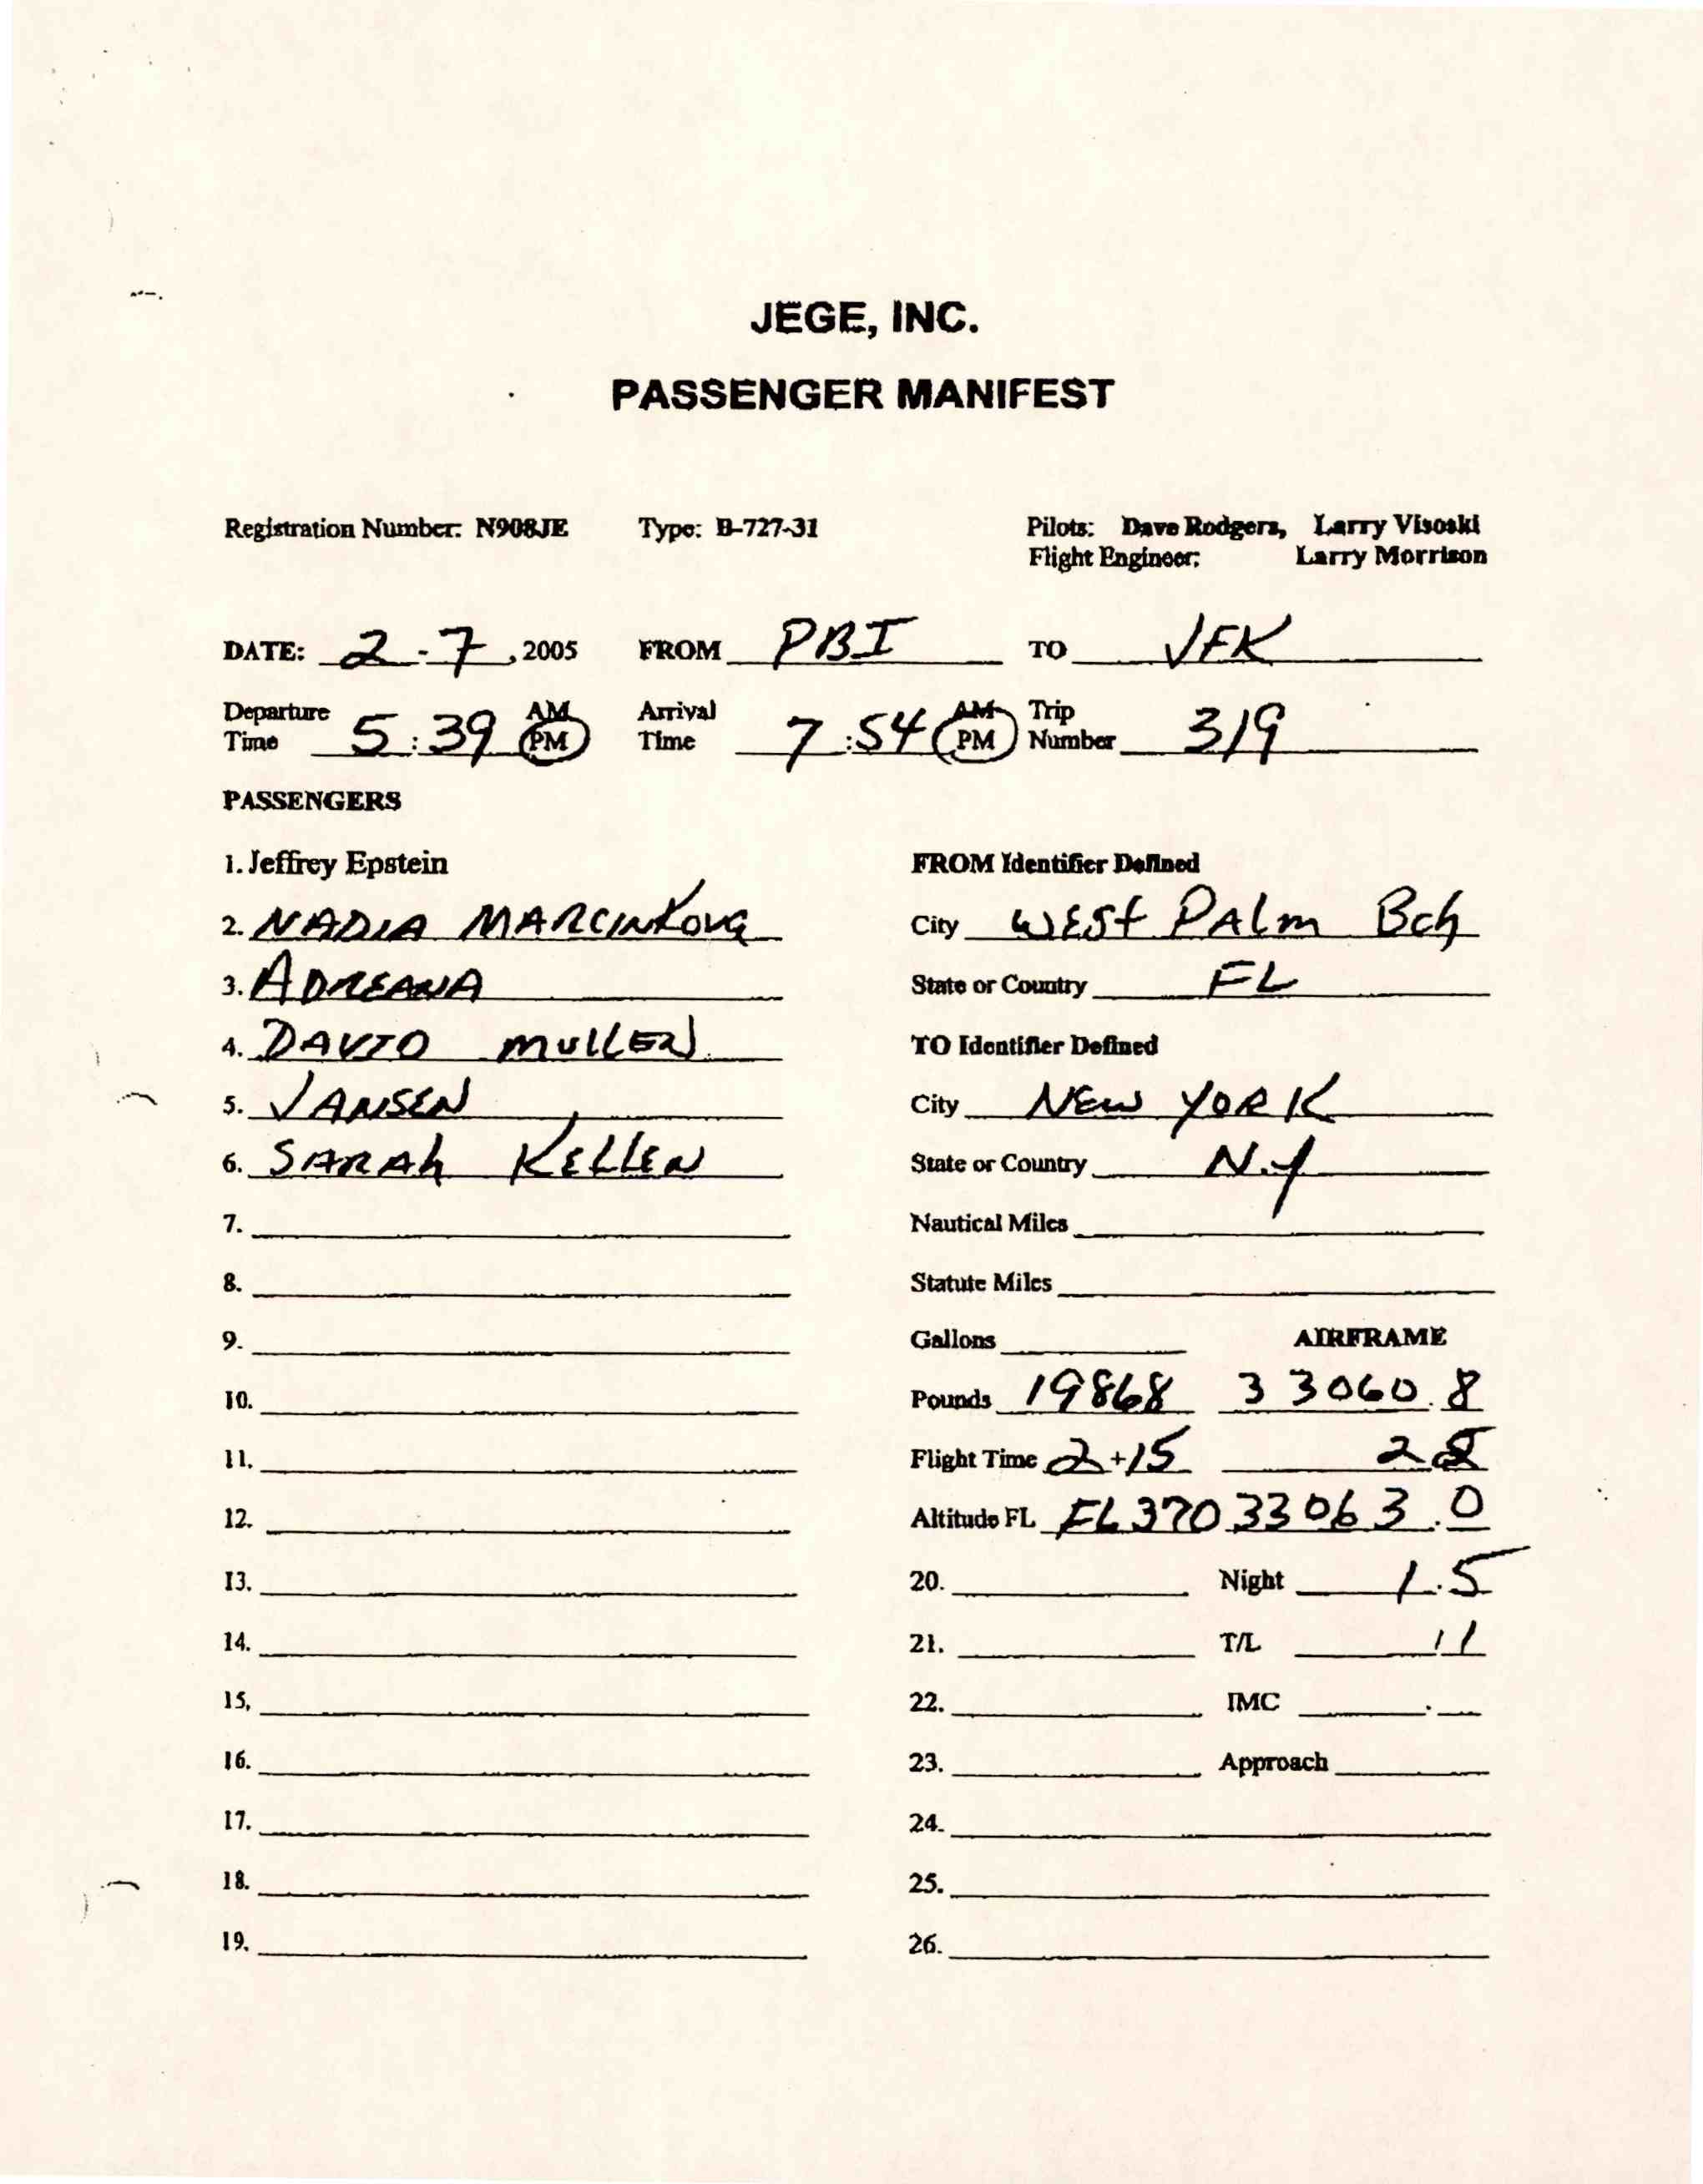 JEGE, INC.
PASSENGER MANIFEST
Registration Number: N908JE Type: B-727-31 Pilots: Dave Rodgers, Larry Visoski
Flight Engineer: Larry Morrison
DATE: 2-7, 2005 FROM PBI TO JFK
Departure Time 5:39 AM PM Arrival Time 7:54 AM PM Trip Number 319
PASSENGERS
1. Jeffrey Epstein FROM Identifier Defined
2. NADIA MARCINKOVA City WEST PALM Bch
3. ADREANA State or Country FL
4. DAVID MULLEN TO Identifier Defined
5. JANSEN City NEW YORK
6. SARAH KELLEN State or Country N.Y
7. Nautical Miles
8. Statute Miles
9. Gallons AIRFRAME
10. Pounds 19868 33060.8
11. Flight Time 2+15 2
12. Altitude FL FL370 33063.0
13. 20. Night 1.5
14. 21. T/L 1 1
15. 22. IMC .
16. 23. Approach
17. 24.
18. 25.
19. 26.